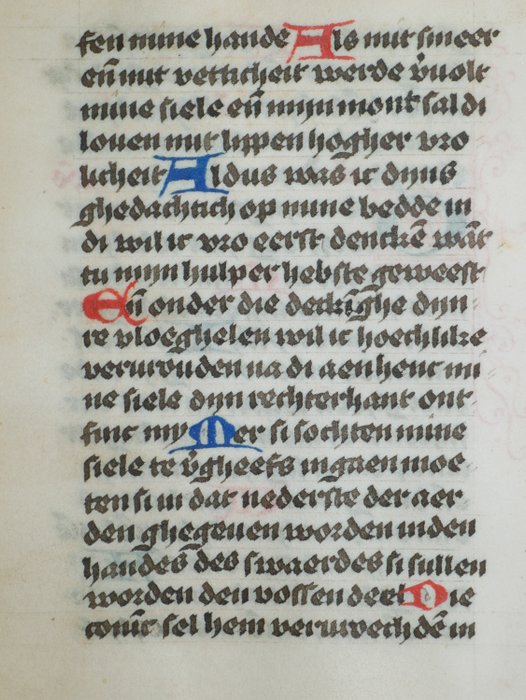 fen mine hande Als mit smeer
eñ mit vetticheit werde v̄uolt
mine siele eñ mijn mont sal di
louen mit lippen hogher vro
licheit Aldus was ic dijns
ghedachtich op mine bedde in
di wil ic vro eerst dencke᷑ wāt
tu mijn hulper hebste geweest
Eñ onder die deck̄ighe dijn
re vloeghelen wil ic hoechlike
vervrouden na di aenhenc mi
ne siele dijn rechterhant ont
finc my Mer si sochten mine
siele te v̄gheefs ingaen moe
ten si in dat nederste der aer
den ghegeuen worden in den
handēs des swaerdes si sullen
worden den vossen deel Die
coninc sel hem verurechdē in